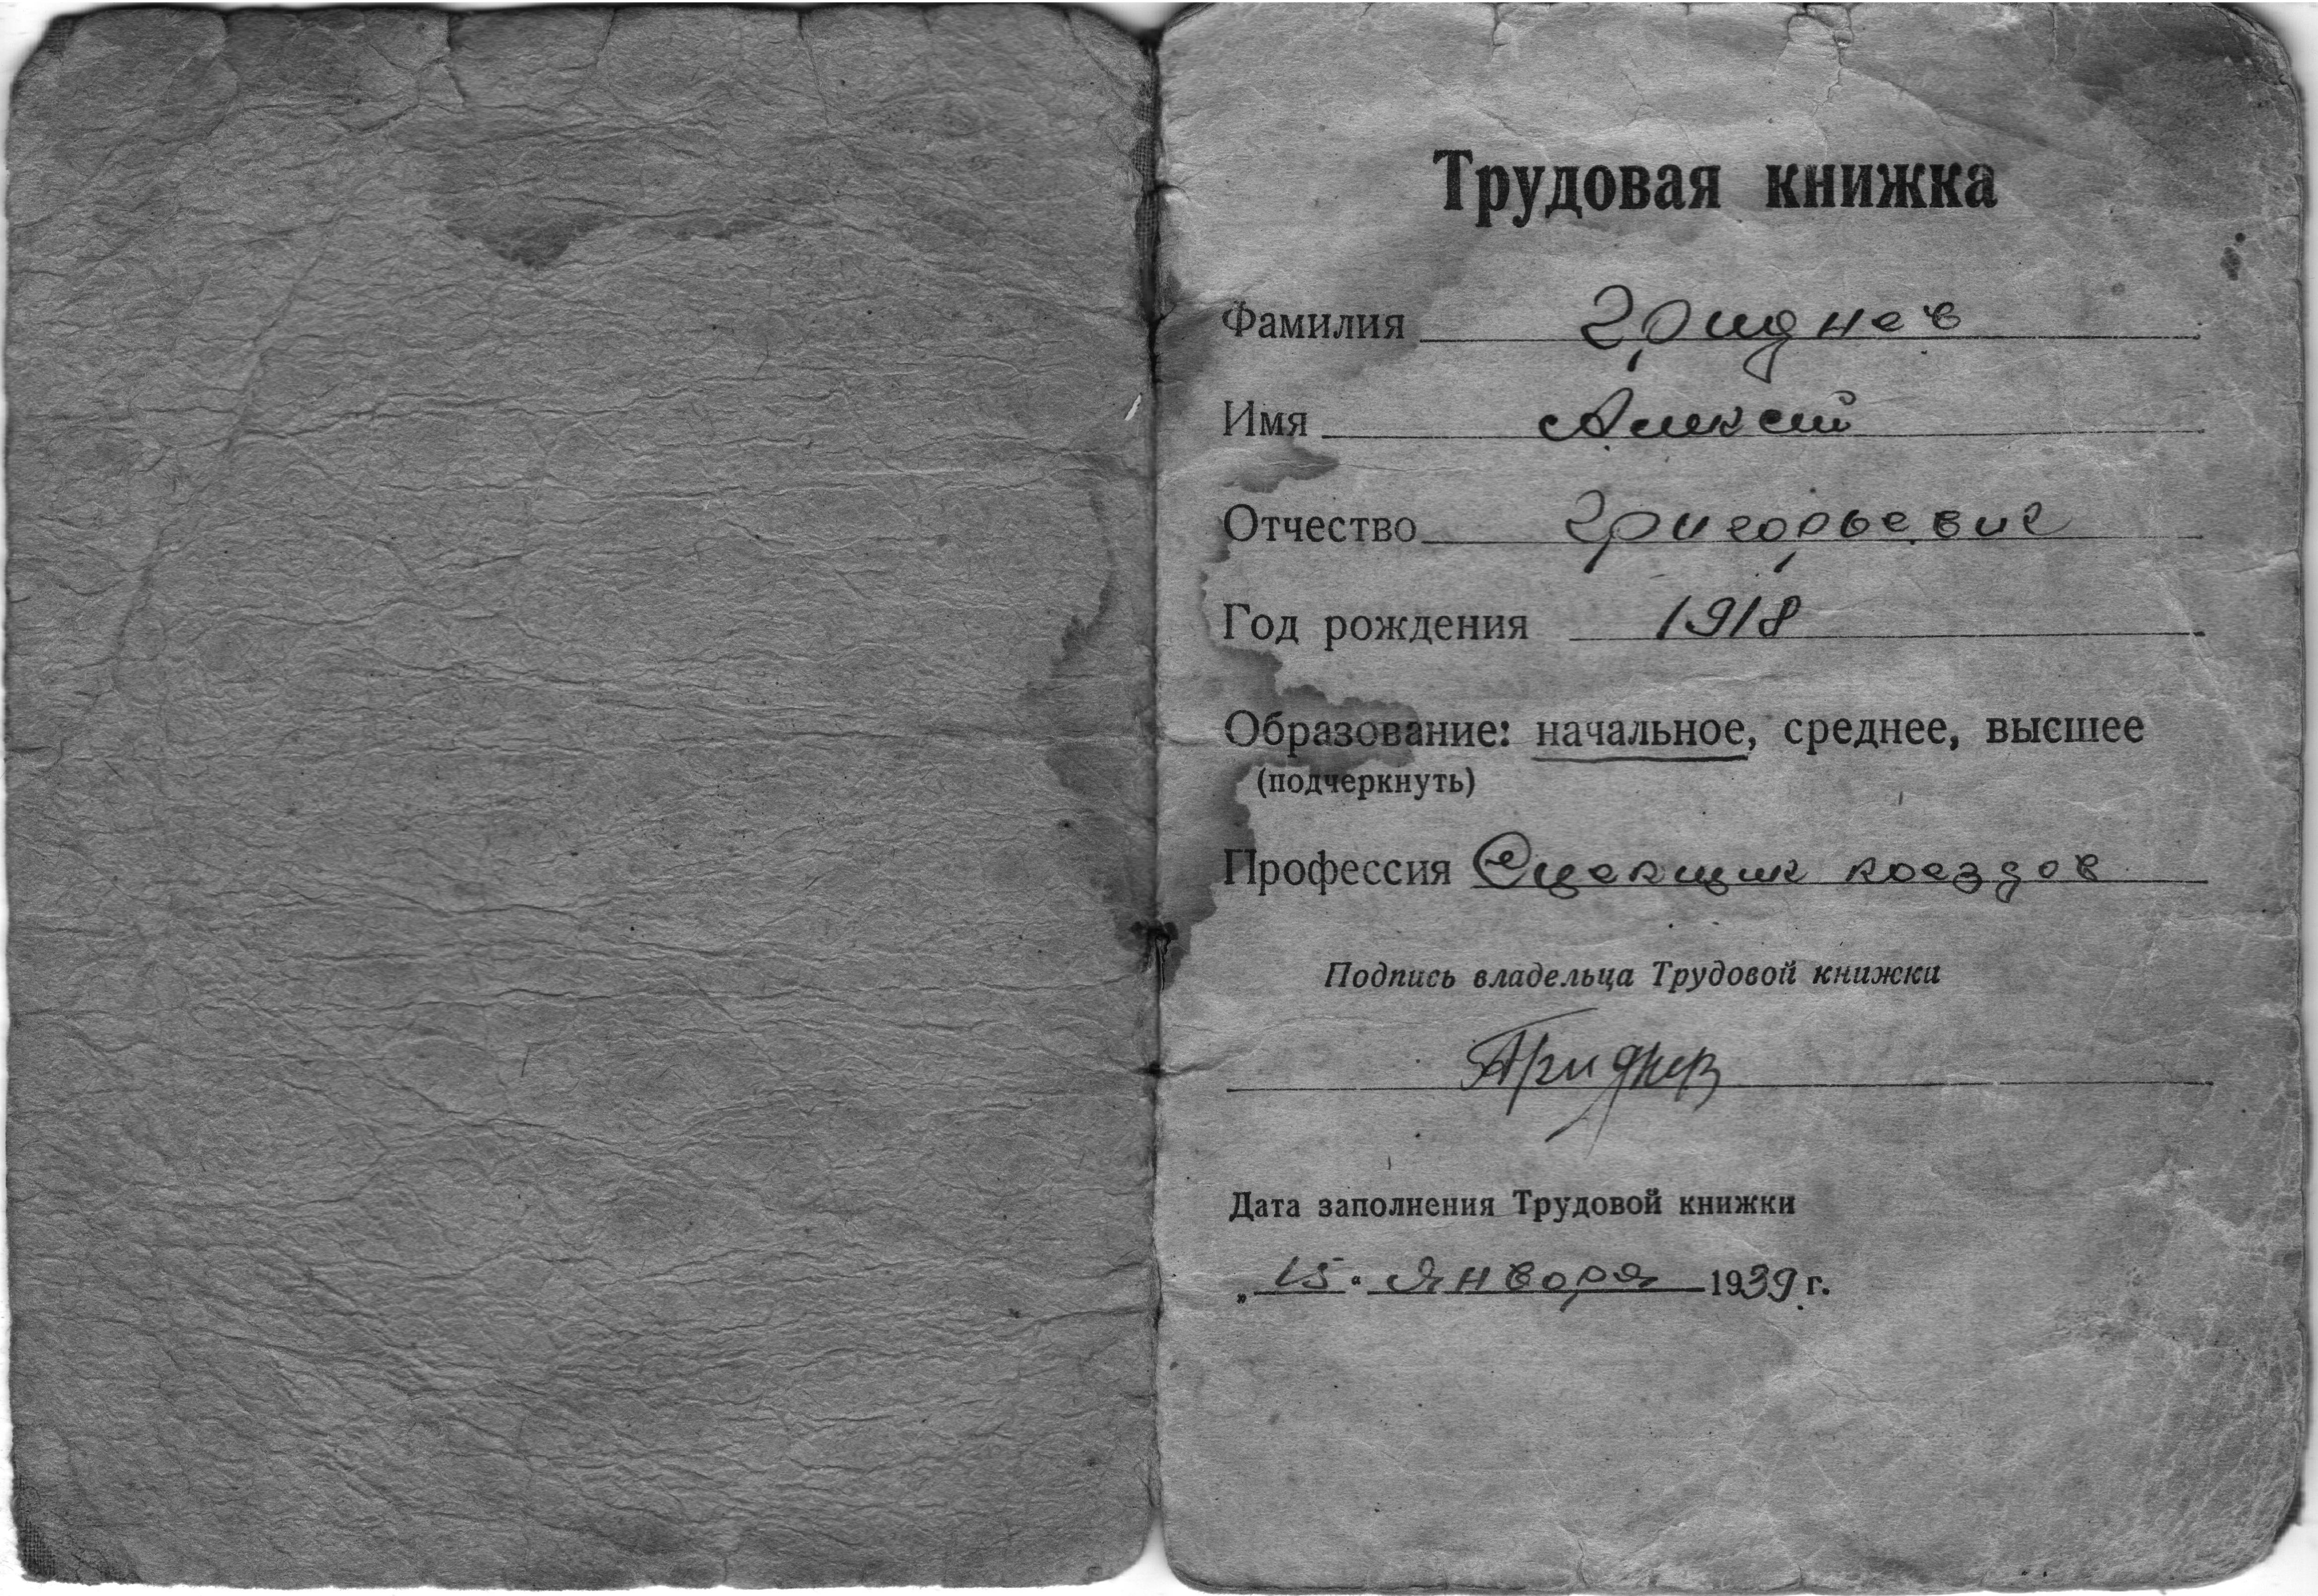 Трудовая книжка
Фамилия Гриднев
Имя Алексей
Отчество Григорьевич
Год рождения 1918
Образование: начальное, среднее, высшее
(подчеркнуть)
Профессия Сцепщик поездов
Подпись владельца Трудовой книжки
Гриднев
Дата заполнения Трудовой книжки
„15“ Января 1939 г.